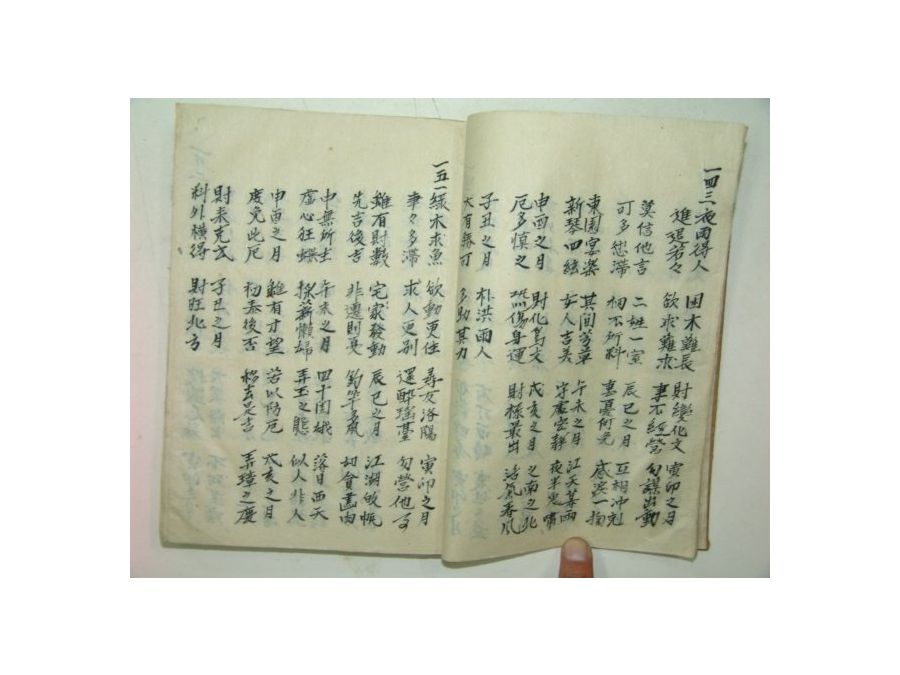 一四三夜雨得人 困木難長 財變化文 寅卯之月
進退若々 欲求難求 事不經營 勿謀出動
莫信他言 二姓一室 辰巳之月 互相冲剋
可多愆滯 相不所料 喜憂何免 感淚一掬
東園宴樂 其間芳草 午未之月 江天暮雨
新琴四絃 女人吉美 守處安静 夜半鬼嘯
申酉之月 財化為文 戌亥之月 之南之北
厄多慎之 恐傷身運 財祿最出 浩氣春風
子丑之月 朴洪兩人
大有 可 多助其力
一五一緣木求魚 欲動更住 尋女洛陽 寅卯之月
事々多滯 求人更别 還醉瑤臺 勿營他事
雖有財數 宅家發動 辰巳之月 江湖收帆
先吉後吉 非遷則憂 釣竿多風 切貪畵肉
申無所主 午未之月 四十閨娥 落日西天
虛心狂蝶 採薪懶婦 弄玉之態 似人非人
申酉之月 雖有才望 若以防厄 戌亥之月
度免此厄 初泰後否 移去是吉 弄璋之慶
財来克武 子丑之月
料外橫得 財旺北方